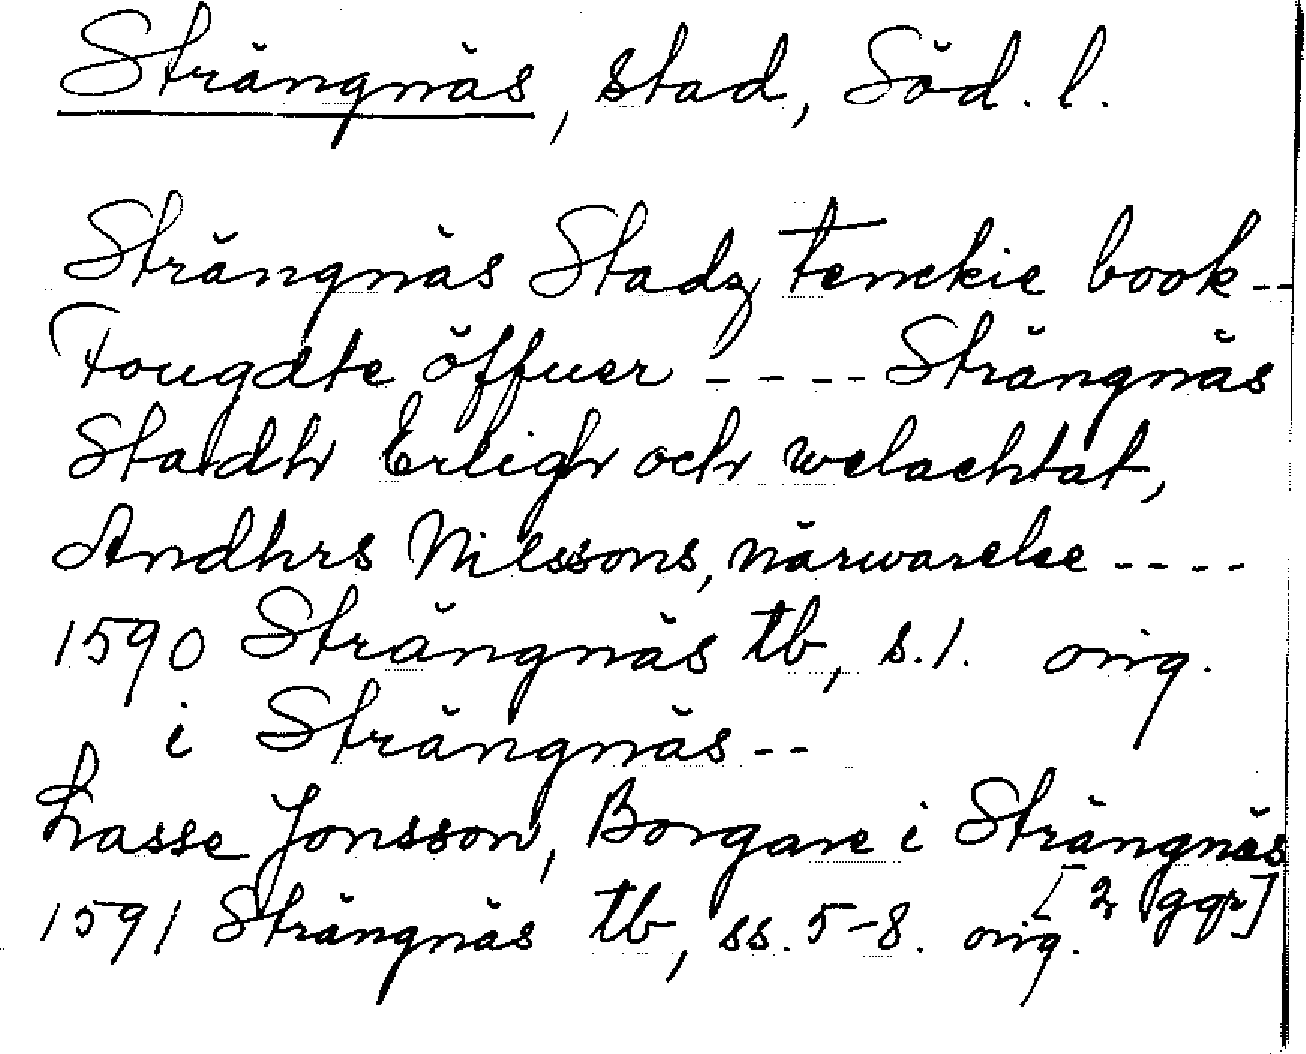 Strängnäs, stad, Söd. l.
Strängnäs Stadz tenckie book --
Fougdte öffuer ---- Strängnäs
Stadh Erligh och welachtat,
Andhrs Nilssons, närwarelse ----
1590 Strängnäs tb, s. 1. orig.
i Strängnäs --
Lasse Jonsson, Borgare i Strängnäs
[2 ggr]
1591 Strängnäs tb, ss. 5-8. orig.